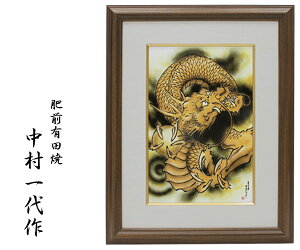 肥前有田焼
中村一代作